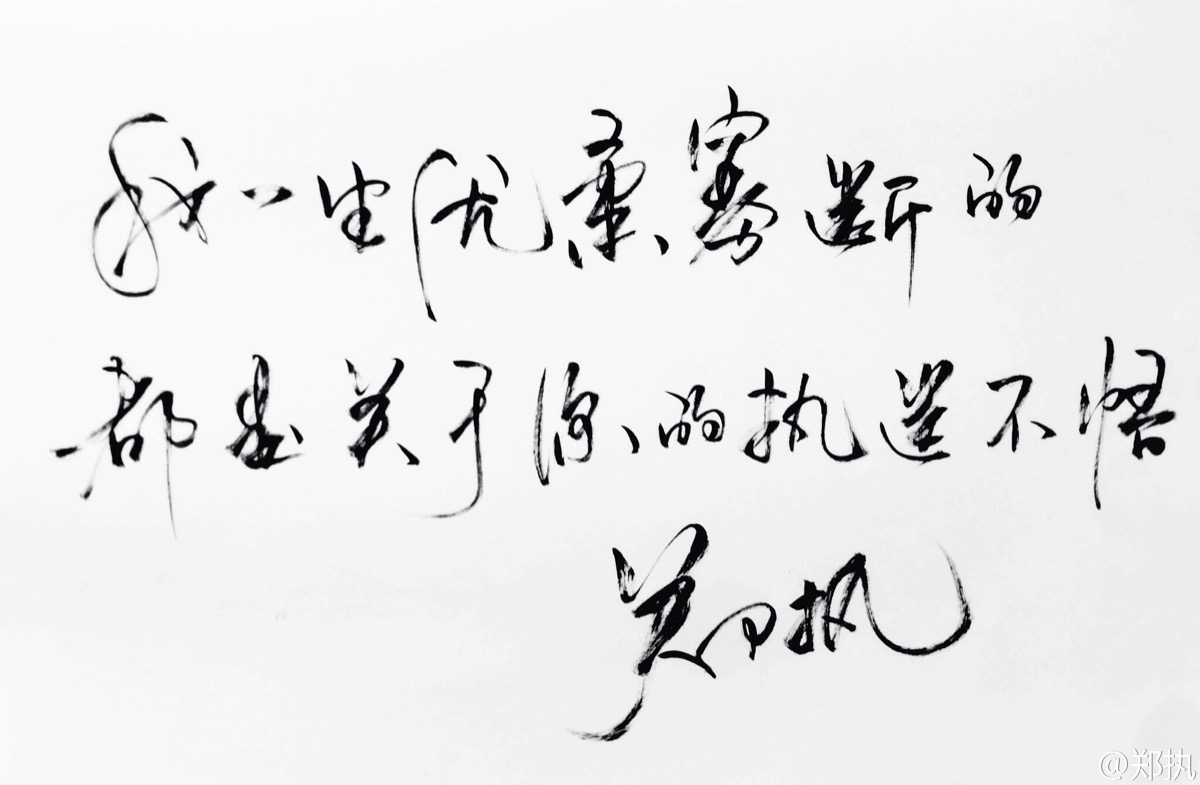 我一生优柔寡断的
都是关于你的执迷不悟
郑执
@郑执